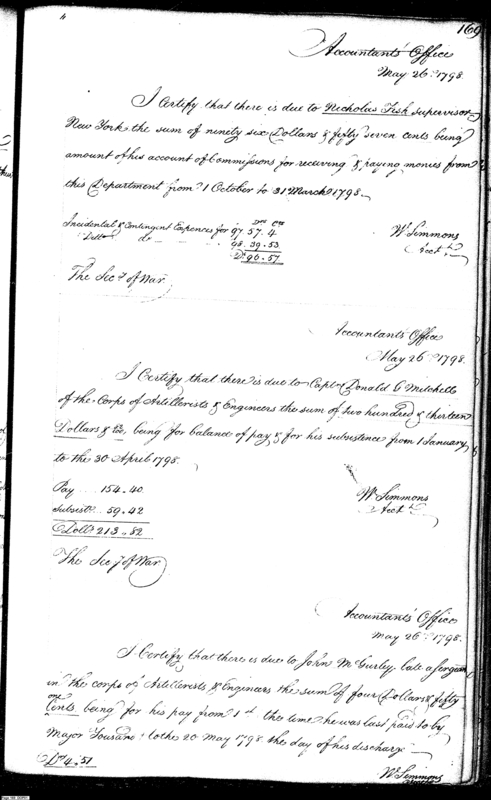 169
Accountants' Office
May 26th 1798.
I Certify that there is due to Nicholas Fish Supervisor
New York the sum of ninety six Dollars & fifty seven cents being
amount of his account of Commissions for receiving & paying monies from
this Department from 1 October to 31 March 1798.
Dolls Cts
Incidental & Contingent Expences for 97. 57. 4
Ditto do 98. 39. 53
Ds 96. 57
Wm Simmons
Acct.
The Secy of War
Accountants' Office
May 26th 1798.
I Certify that there is due to Capt. Donald G Mitchell
of the Corps of Artillerists & Engineers the sum of two hundred & thirteen
Dollars & being for balance of pay & for his subsistence from 1 January
to the 30 April 1798.
Pay 154.40
Subsist. 59.42
Doll 213.82
Wm Simmons
Acct.
The Secy of War
Accountants' Office
May 26th 1798.
I Certify that there is due to John McCurley late a Sergeant
in the corps of Artillerists & Engineers the sum of four Dollars & fifty
one
Cents being for his pay from 1st the time he was last paid to by
Major Tousard to the 20 May 1798 the day of his discharge
Ds 4.51
Wm Simmons